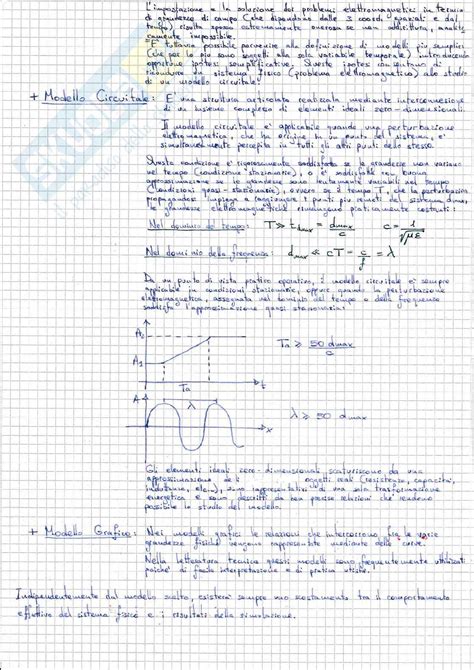 L'impostazione e la soluzione dei problemi elettromagnetici in termini
di grandezze di campo (che dipendono dalle 3 coord. spaziali e dal
tempo) risulta spesso estremamente onerosa se non addirittura, analiti-
camente impossibile.
E' tuttavia possibile pervenire alla definizione di modelli più semplici
(che per lo più sono soggetti alla sola variabile temporale) introducendo
opportune ipotesi semplificative. Queste ipotesi consentono di
ricondurre un sistema fisico (problema elettromagnetico) allo studio
di un modello circuitale.
+ Modello Circuitale: E' una struttura articolata realizzata mediante interconnessione
di un insieme complesso di elementi ideali zero-dimensionali.
Il modello circuitale e' applicabile quando una perturbazione
elettromagnetica, che ha origine in un punto del sistema, e'
simultaneamente percepita in tutti gli altri punti dello stesso.
Questa condizione e' rigorosamente soddisfatta se le grandezze non variano
nel tempo (condizione stazionaria), o e' soddisfatta con buona
approssimazione se le grandezze sono lentamente variabili nel tempo
(condizioni quasi-stazionarie), ovvero se il tempo T, che la perturbazione
propagandosi impiega a raggiungere i punti più remoti del sistema dmax,
le grandezze elettromagnetiche rimangono praticamente costanti:
Nel dominio del tempo: T >> tdmax = dmax/c c = 1/√με
Nel dominio della frequenza: dmax << cT = c/f = λ
Da un punto di vista pratico operativo, il modello circuitale e' sempre
applicabile in condizioni stazionarie, oppure quando la perturbazione
elettromagnetica, assegnata nel dominio del tempo o della frequenza
soddisfa l'approssimazione quasi stazionaria:
A2
A1
Ta
t
Ta ≥ 50 dmax/c
A
λ
x
λ ≥ 50 dmax
Gli elementi ideali zero-dimensionali scaturiscono da una
approssimazione de i oggetti reali (resistenze, capacità,
induttanze, etc...), sono rappresentativi di una trasformazione
energetica e sono descritti da ben precise relazioni che rendono
possibile lo studio del modello.
+ Modello Grafico: Nei modelli grafici le relazioni che intercorrono fra le varie
grandezze fisiche vengono rappresentate mediante delle curve.
Nella letteratura tecnica questi modelli sono frequentemente utilizzati
poiche' di facile interpretazione e di pratica utilità.
Indipendentemente dal modello scelto, esisterà sempre uno scostamento tra il comportamento
effettivo del sistema fisico e i risultati della simulazione.